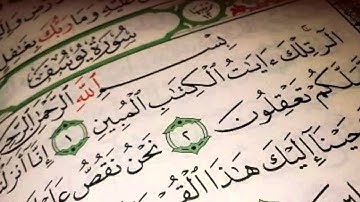 عَلَيْهِ وَمَا رَبُّكَ بِغَٰفِلٍ
سُورَةُ يُوسُفَ
بِسْمِ ٱللَّهِ ٱلرَّحْمَٰنِ ٱلرَّحِيمِ
الٓر تِلْكَ ءَايَٰتُ ٱلْكِتَٰبِ ٱلْمُبِينِ ١ إِنَّآ أَنزَلْنَ
لَّكُمْ تَعْقِلُونَ ٢ نَحْنُ نَقُصُّ عَلَ
حَيْنَآ إِلَيْكَ هَٰذَا ٱلْقُرْ